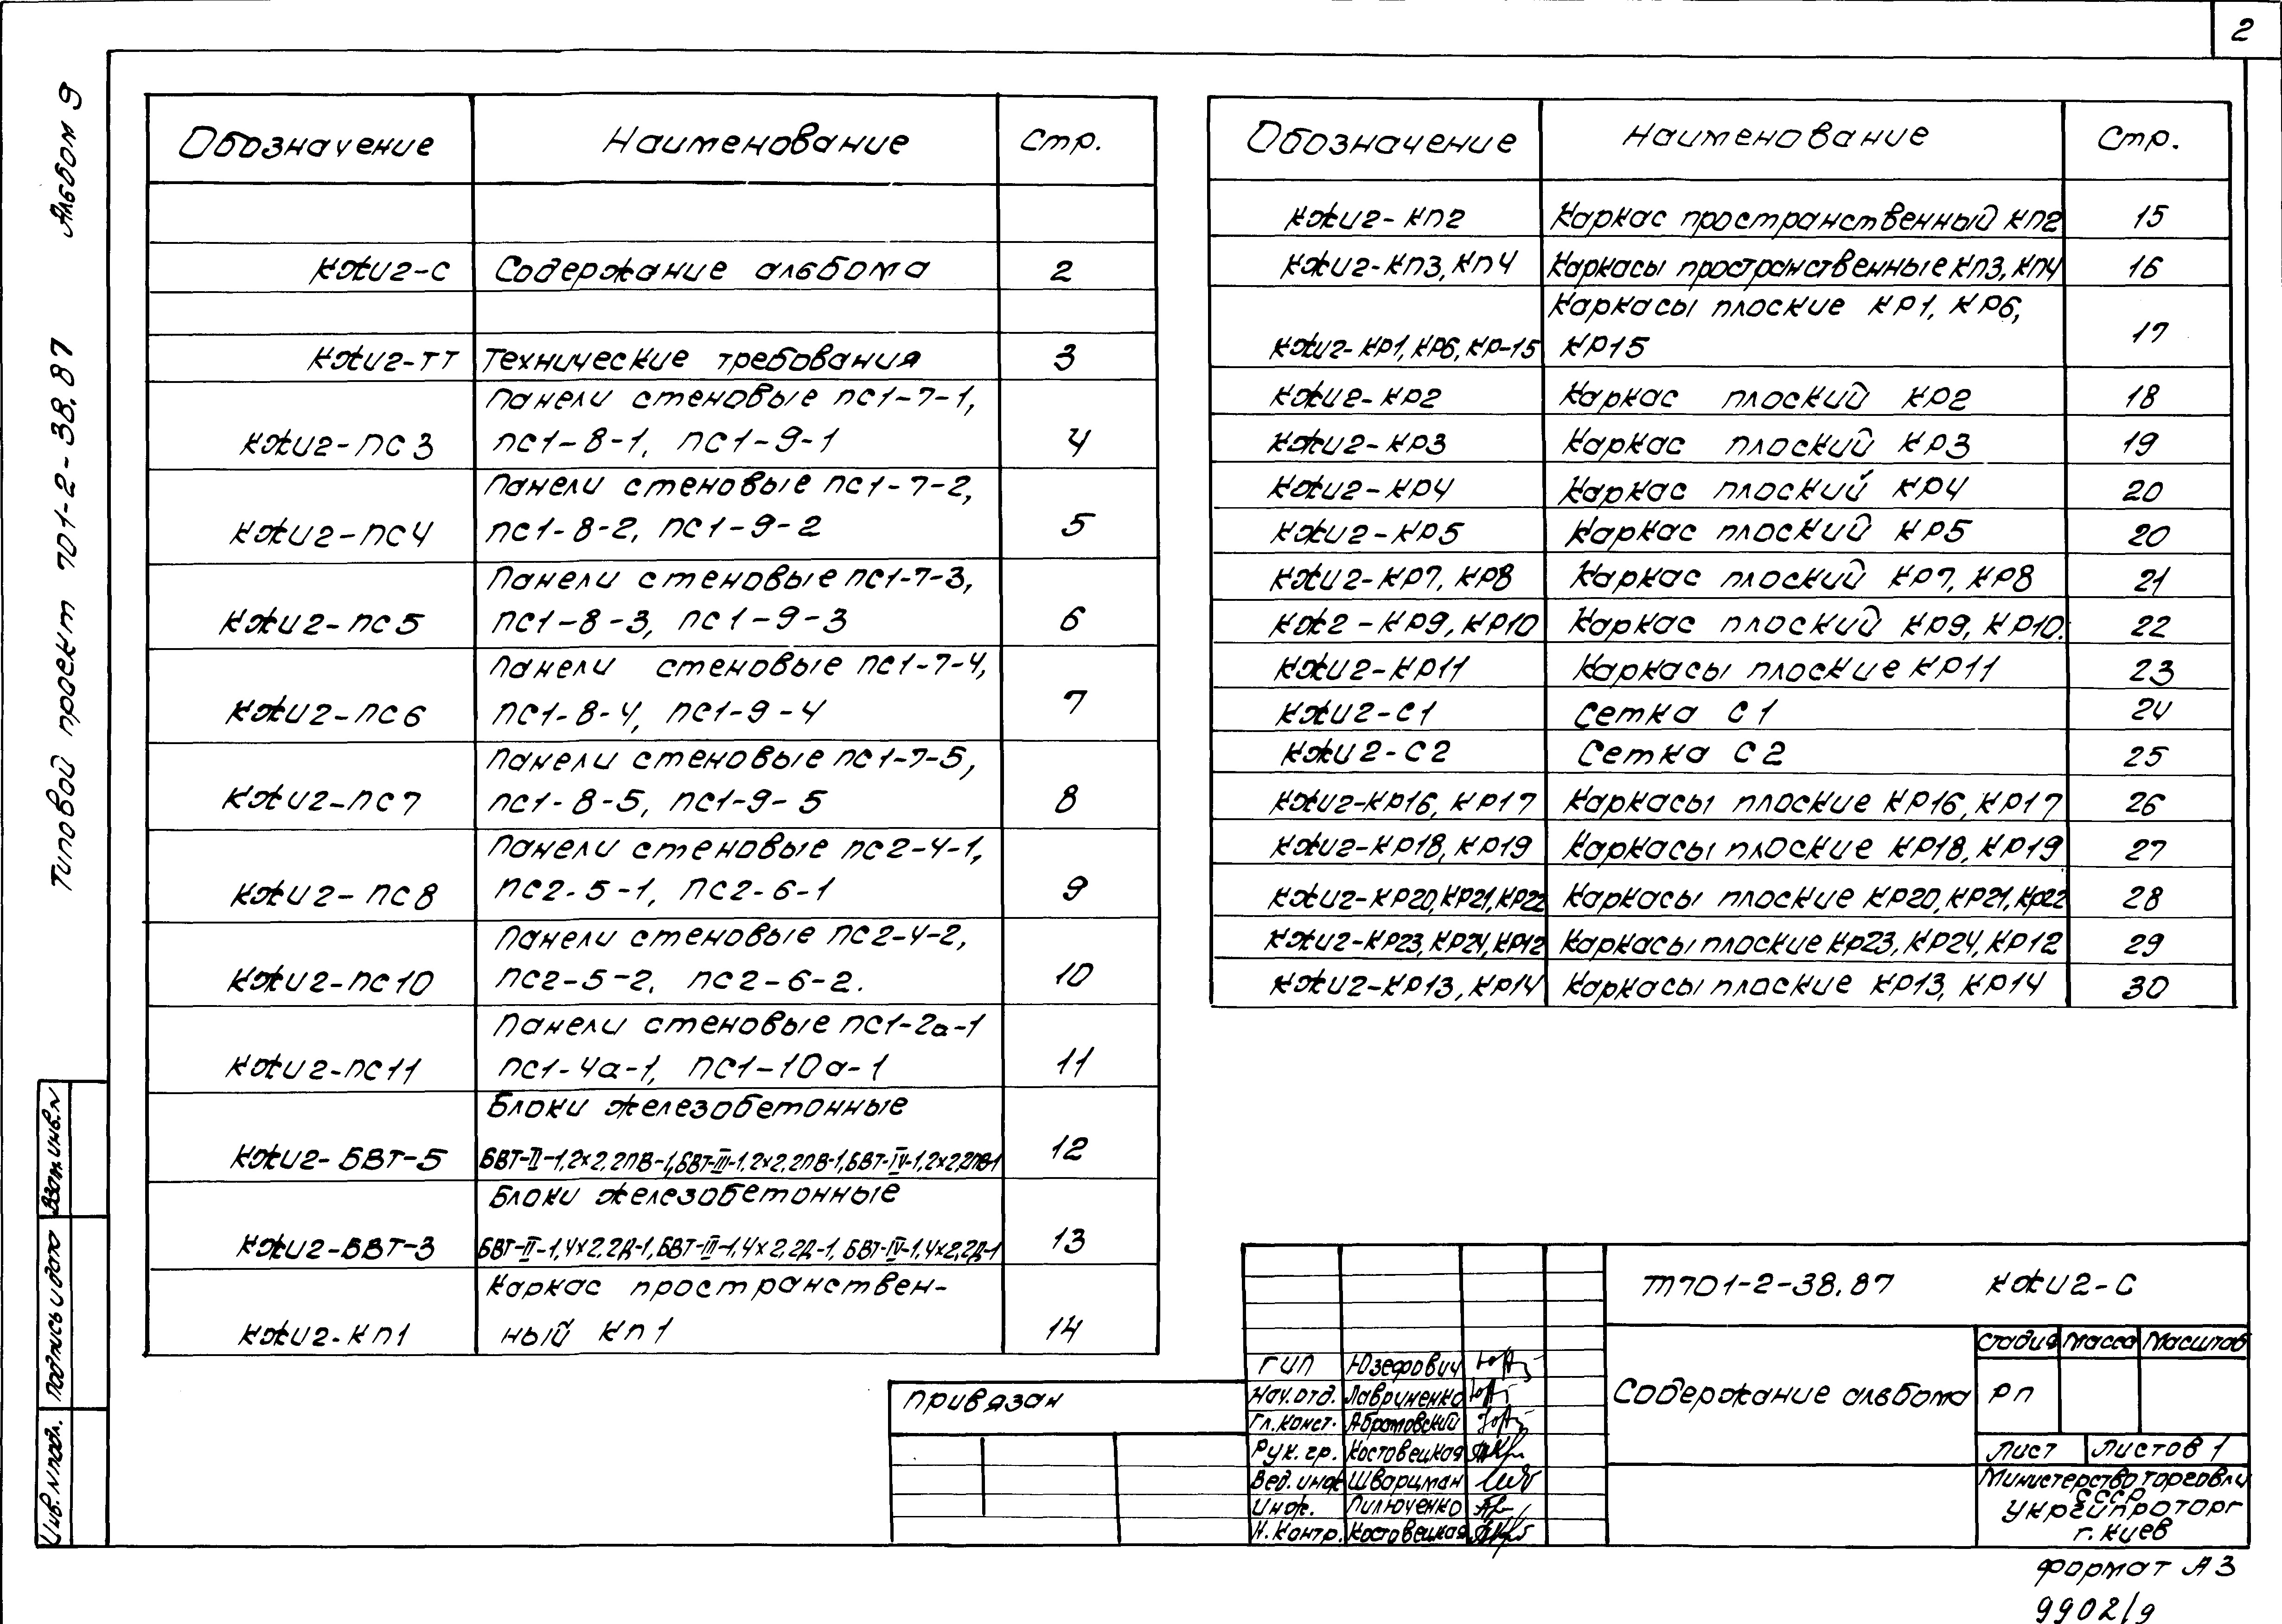 2
Альбом 9
Типовой проект 701-2-38.87
Обозначение Наименование Стр.
КЖИ2-С Содержание альбома 2
КЖИ2-ТТ Технические требования 3
Панели стеновые ПС1-7-1,
КЖИ2-ПС3 ПС1-8-1, ПС1-9-1 4
Панели стеновые ПС1-7-2,
КЖИ2-ПС4 ПС1-8-2, ПС1-9-2 5
Панели стеновые ПС1-7-3,
КЖИ2-ПС5 ПС1-8-3, ПС1-9-3 6
Панели стеновые ПС1-7-4,
КЖИ2-ПС6 ПС1-8-4, ПС1-9-4 7
Панели стеновые ПС1-7-5,
КЖИ2-ПС7 ПС1-8-5, ПС1-9-5 8
Панели стеновые ПС2-4-1,
КЖИ2-ПС8 ПС2-5-1, ПС2-6-1 9
Панели стеновые ПС2-4-2,
КЖИ2-ПС10 ПС2-5-2, ПС2-6-2. 10
Панели стеновые ПС1-2а-1
КЖИ2-ПС11 ПС1-4а-1, ПС1-10а-1 11
Блоки железобетонные
КЖИ2-БВТ-5 БВТ-II-1,2×2,2ПВ-1, БВТ-III-1,2×2,2ПВ-1, БВТ-IV-1,2×2,2ПВ-1 12
Блоки железобетонные
КЖИ2-БВТ-3 БВТ-II-1,4×2,2Д-1, БВТ-III-1,4×2,2Д-1, БВТ-IV-1,4×2,2Д-1 13
Каркас пространствен-
КЖИ2-КП1 ный КП1 14
Обозначение Наименование Стр.
КЖИ2-КП2 Каркас пространственный КП2 15
КЖИ2-КП3, КП4 Каркасы пространственные КП3, КП4 16
Каркасы плоские КР1, КР6,
КЖИ2-КР1, КР6, КР-15 КР15 17
КЖИ2-КР2 Каркас плоский КР2 18
КЖИ2-КР3 Каркас плоский КР3 19
КЖИ2-КР4 Каркас плоский КР4 20
КЖИ2-КР5 Каркас плоский КР5 20
КЖИ2-КР7, КР8 Каркас плоский КР7, КР8 21
КЖ2-КР9, КР10 Каркас плоский КР9, КР10. 22
КЖИ2-КР11 Каркасы плоские КР11 23
КЖИ2-С1 Сетка С1 24
КЖИ2-С2 Сетка С2 25
КЖИ2-КР16, КР17 Каркасы плоские КР16, КР17 26
КЖИ2-КР18, КР19 Каркасы плоские КР18, КР19 27
КЖИ2-КР20, КР21, КР22 Каркасы плоские КР20, КР21, КР22 28
КЖИ2-КР23, КР24, КР12 Каркасы плоские КР23, КР24, КР12 29
КЖИ2-КР13, КР14 Каркасы плоские КР13, КР14 30
Взам.инв.N
Подпись и дата
Инв.N подл.
Привязан
ТП701-2-38.87 КЖИ2-С
ГИП Юзефович
Нач.отд. Лавриненко
Гл.конст. Абрамовский
Рук.гр. Костовецкая
Вед.инж Шварцман
Инж. Пилюченко
Н.контр. Костовецкая
Содержание альбома
Стадия Масса Масштаб
РП
Лист Листов 1
Министерство торговли
СССР
Укргипроторг
г.Киев
Формат А3
9902/9